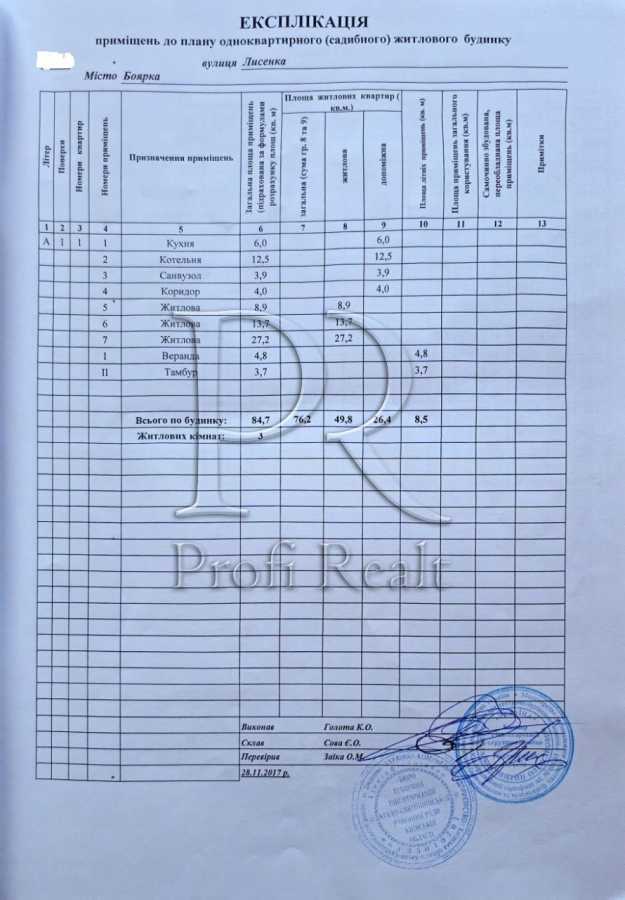 ЕКСПЛІКАЦІЯ
приміщень до плану одноквартирного (садибного) житлового будинку
вулиця Лисенка
Місто Боярка
Літер
Поверхи
Номери квартир
Номери приміщень
Призначення приміщень
Загальна площа приміщень (підрахована за формулами розрахунку площ (кв. м)
Площа житлових квартир ( кв.м.)
загальна (сума гр. 8 та 9)
житлова
допоміжна
Площа літніх приміщень (кв. м)
Площа приміщень загального користування (кв.м)
Самочинно збудована, переобладнана площа приміщень (кв.м)
Примітки
1 2 3 4 5 6 7 8 9 10 11 12 13
А 1 1 1 Кухня 6,0 6,0
2 Котельня 12,5 12,5
3 Санвузол 3,9 3,9
4 Коридор 4,0 4,0
5 Житлова 8,9 8,9
6 Житлова 13,7 13,7
7 Житлова 27,2 27,2
I Веранда 4,8 4,8
II Тамбур 3,7 3,7
Всього по будинку: 84,7 76,2 49,8 26,4 8,5
Житлових кімнат: 3
Profi Realt
Виконав Голота К.О.
Склав Сова Є.О.
Перевірив Заїка О.М.
28.11.2017 р.
БЮРО
ТЕХНІЧНОЇ
ІНВЕНТАРИЗАЦІЇ